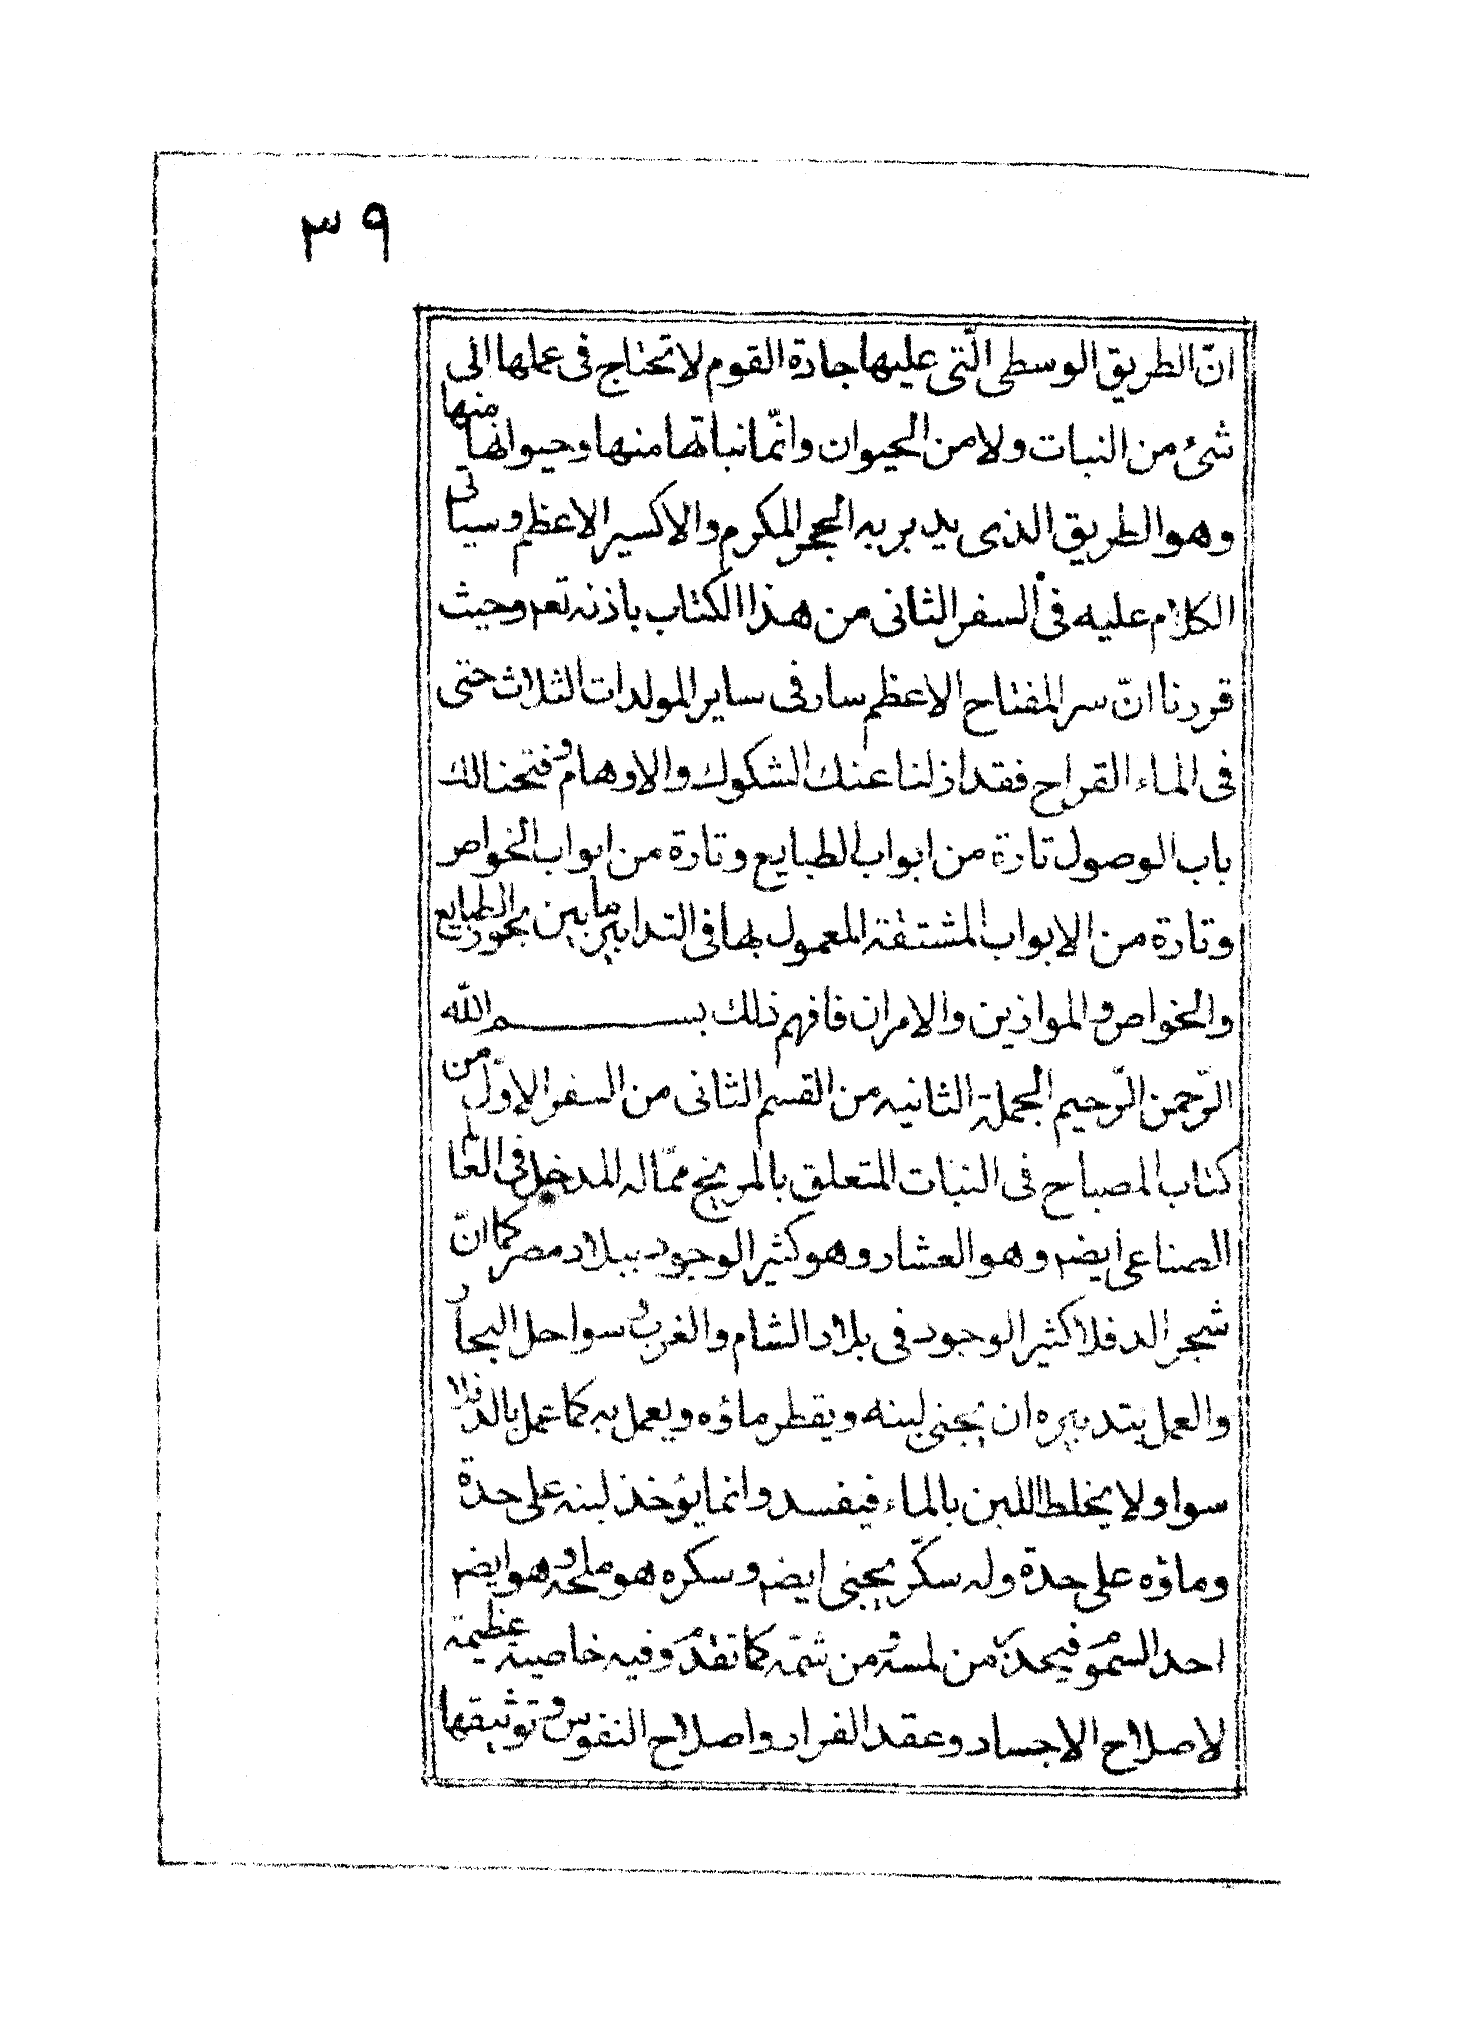 ٣٩
انّ الطريق الوسطى الّتى عليها جادة القوم لا تحتاج فى عملها الى
شئ من النبات ولا من الحيوان وانّما نباتها منها وحيوانها منها
وهو الطريق الذى يدبر به الحجر المكرم والاكسير الاعظم وسياتى
الكلام عليه فى السفر الثانى من هذا الكتاب باذنه تعم وحيث
قررنا انّ سر المفتاح الاعظم سار فى ساير المولدات الثلاث حتى
فى الماء القراح فقد ازلنا عنك الشكوك والاوهام وفتحنا لك
باب الوصول تارة من ابواب الطبايع وتارة من ابواب الخواص
وتارة من الابواب المشتقة المعمول بها فى التدابير ما بين بحور الطبايع
والخواص والموازين والامران فافهم ذلك بسم الله
الرّحمن الرّحيم الجملة الثانيه من القسم الثانى من السفر الاوّل من
كتاب المصباح فى النبات المتعلق بالمريخ ممّا له المدخل فى العالم
الصناعى ايضه وهو العشار وهو كثير الوجود ببلاد مصر كما انّ
شجر الدفلا كثير الوجود فى بلاد الشام والغرب وسواحل البحار
والعمل بتدبيره ان يجنى لبنه ويقطر ماؤه ويعمل به كما عمل بالدفلا
سوا ولا يخلط اللبن بالماء فيفسد وانما يؤخذ لبنه على حدة
وماؤه على حدة وله سكّر يجنى ايضه وسكره هو ملحه وهو ايضه
احد السموم فيحذر من لمسه ومن شمّه كما تقدم وفيه خاصية عظيمة
لاصلاح الاجساد وعقد الفرار واصلاح النفوس وتوثيقها